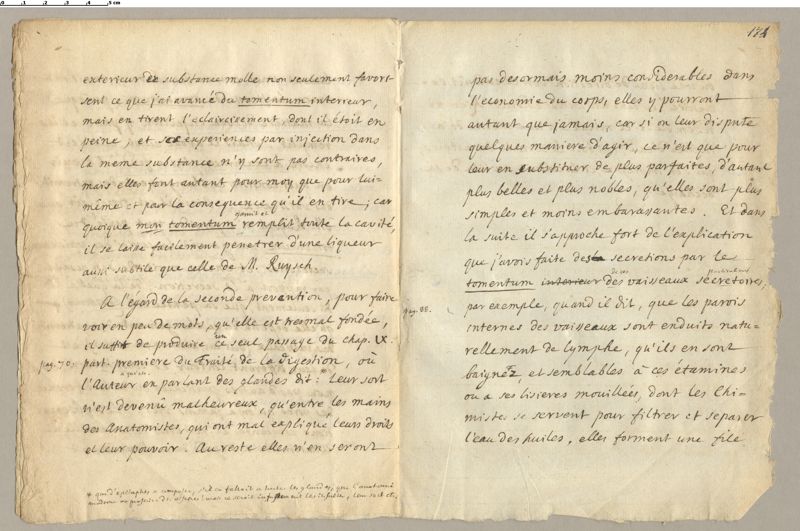 exterieur de substance molle non seulement favori-
sent ce que j'ai avancé du tomentum interieur,
mais en tirent l'eclaircissement, dont il étoit en
peine, et ses experiences par injection dans
la meme substance n'y sont pas contraires,
mais elles font autant pour moy que pour lui-
même et par la consequence qu'il en tire; car
quoique mon tomentum remplit toute la cavité,
il se laisse facilement penetrer d'une liqueur
aussi subtile que celle de M. Ruysch.
A l'égard de la seconde prevention, pour faire
voir en peu de mots, qu'elle est tres mal fondée,
il suffit de produire ce seul passage du chap. IX.
pag. 70. part. premiere du Traité de la digestion, où
l'Auteur en parlant des glandes dit: Leur sort
n'est devenû malheureux, qu'entre les mains
des Anatomistes, qui ont mal expliqué leurs droits
et leur pouvoir. Au reste elles n'en seront
184
pas desormais moins considerables dans
l'economie du corps, elles y pourront
autant que jamais, car si on leur dispute
quelques maniere d'agir, ce n'est que pour
leur en substituer de plus parfaites, d'autant
plus belles et plus nobles, qu'elles sont plus
simples et moins embarasantes. Et dans
la suite il s'approche fort de l'explication
que j'avois faite des secretions par le
tomentum interieur des vaisseaux secretoires,
pag. 88. par exemple, quand il dit, que les parois
internes des vaisseaux sont enduits natu-
rellement de lymphe, qu'ils en sont
baignez, et semblables à ces étamines
ou a ses lisieres mouillées, dont les Chi-
mistes se servent pour filtrer et separer
l'eau des huiles, elles forment une file